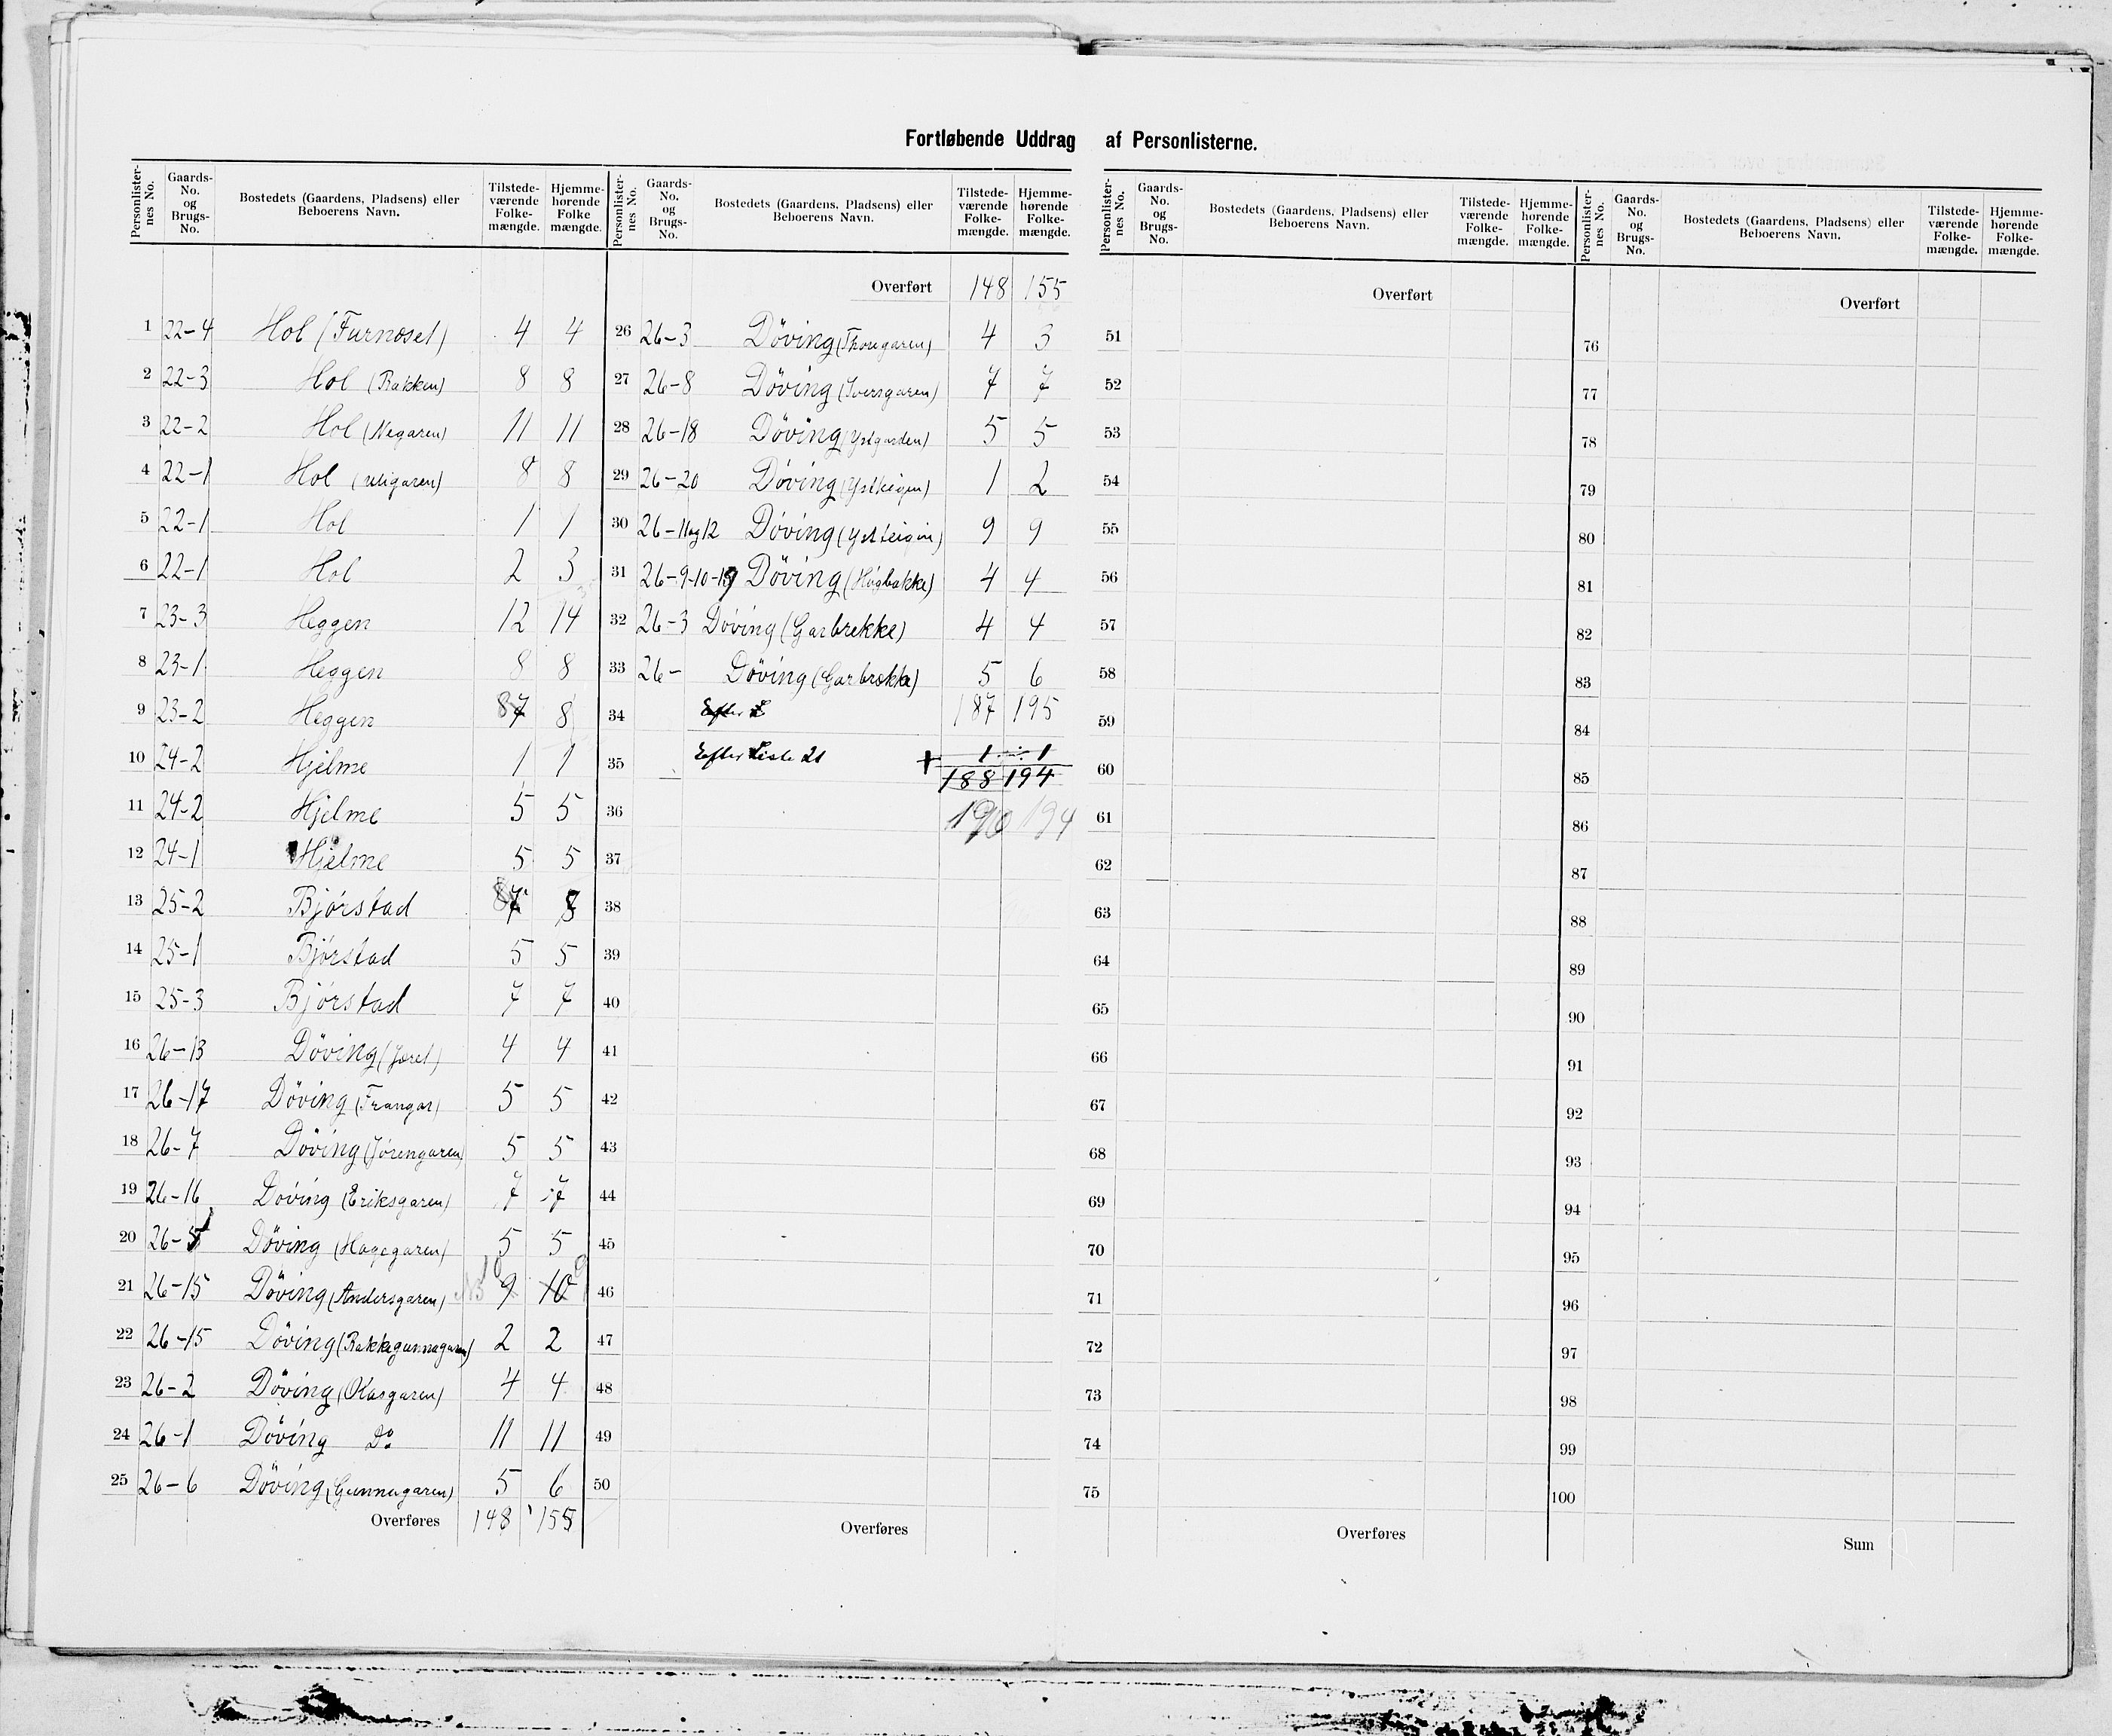 Fortløbende Uddrag af Personlisterne.
Personlister-nes No. Gaards-No. og Brugs-No. Bostedets (Gaardens, Pladsens) eller Beboerens Navn. Tilstede-værende Folke-mængde. Hjemme-hørende Folke mængde.
1 22-4 Hol (Furnoset) 4 4
2 22-3 Hol (Bakken) 8 8
3 22-2 Hol (Negaren) 11 11
4 22-1 Hol 8 8
5 22-1 Hol 1 1
6 22-1 Hol 2 3
7 23-3 Heggen 12 14
8 23-1 Heggen 8 8
9 23-2 Heggen 8 7 8
10 24-2 Hjelme 1 1
11 24-2 Hjelme 5 5
12 24-1 Hjelme 5 5
13 25-2 Bjórstad 8 7 8
14 25-1 Bjórstad 5 5
15 25-3 Bjórstad 7 7
16 26-13 Döving (Joret) 4 4
17 26-17 Döving (Frangar) 5 5
18 26-7 Döving (Jórengaren) 5 5
19 26-16 Döving (Eriksgaren) 7 7
20 26-5 Döving (Hagegaren) 5 5
21 26-15 Döving (Andersgaren) NB 10 9 10 9
22 26-15 Döving (Bakkegunnagaren) 2 2
23 26-2 Döving (Olasgaren) 4 4
24 26-1 Döving Do 11 11
25 26-6 Döving (Gunnagaren) 5 6
Overføres 148 155
Personlister-nes No. Gaards-No. og Brugs-No. Bostedets (Gaardens, Pladsens) eller Beboerens Navn. Tilstede-værende Folke-mængde. Hjemme-hørende Folke-mængde.
Overført 148 155
26 26-3 Döving (Throngaren) 4 3
27 26-8 Döving (Iversgaren) 7 7
28 26-18 Döving (Ystgarden) 5 5
29 26-20 Döving (Ystteigen) 1 2
30 26-11og12 Döving (Ystteigen) 9 9
31 26-9-10-19 Döving (Högbakke) 4 4
32 26-3 Döving (Garbrekke) 4 4
33 26- Döving (Garbrekke) 5 6
34 Efter L 187 195
35 Efter Liste 21 + 1 ÷ 1
188 194
36 190 194
37
38
39
40
41
42
43
44
45
46
47
48
49
50
Overføres
Personlister-nes No. Gaards-No. og Brugs-No. Bostedets (Gaardens, Pladsens) eller Beboerens Navn. Tilstede-værende Folke-mængde. Hjemme-hørende Folke-mængde.
Overført
51
52
53
54
55
56
57
58
59
60
61
62
63
64
65
66
67
68
69
70
71
72
73
74
75
Overføres
Personlister-nes No. Gaards-No. og Brugs-No. Bostedets (Gaardens, Pladsens) eller Beboerens Navn. Tilstede-værende Folke-mængde. Hjemme-hørende Folke-mængde.
Overført
76
77
78
79
80
81
82
83
84
85
86
87
88
89
90
91
92
93
94
95
96
97
98
99
100
Sum